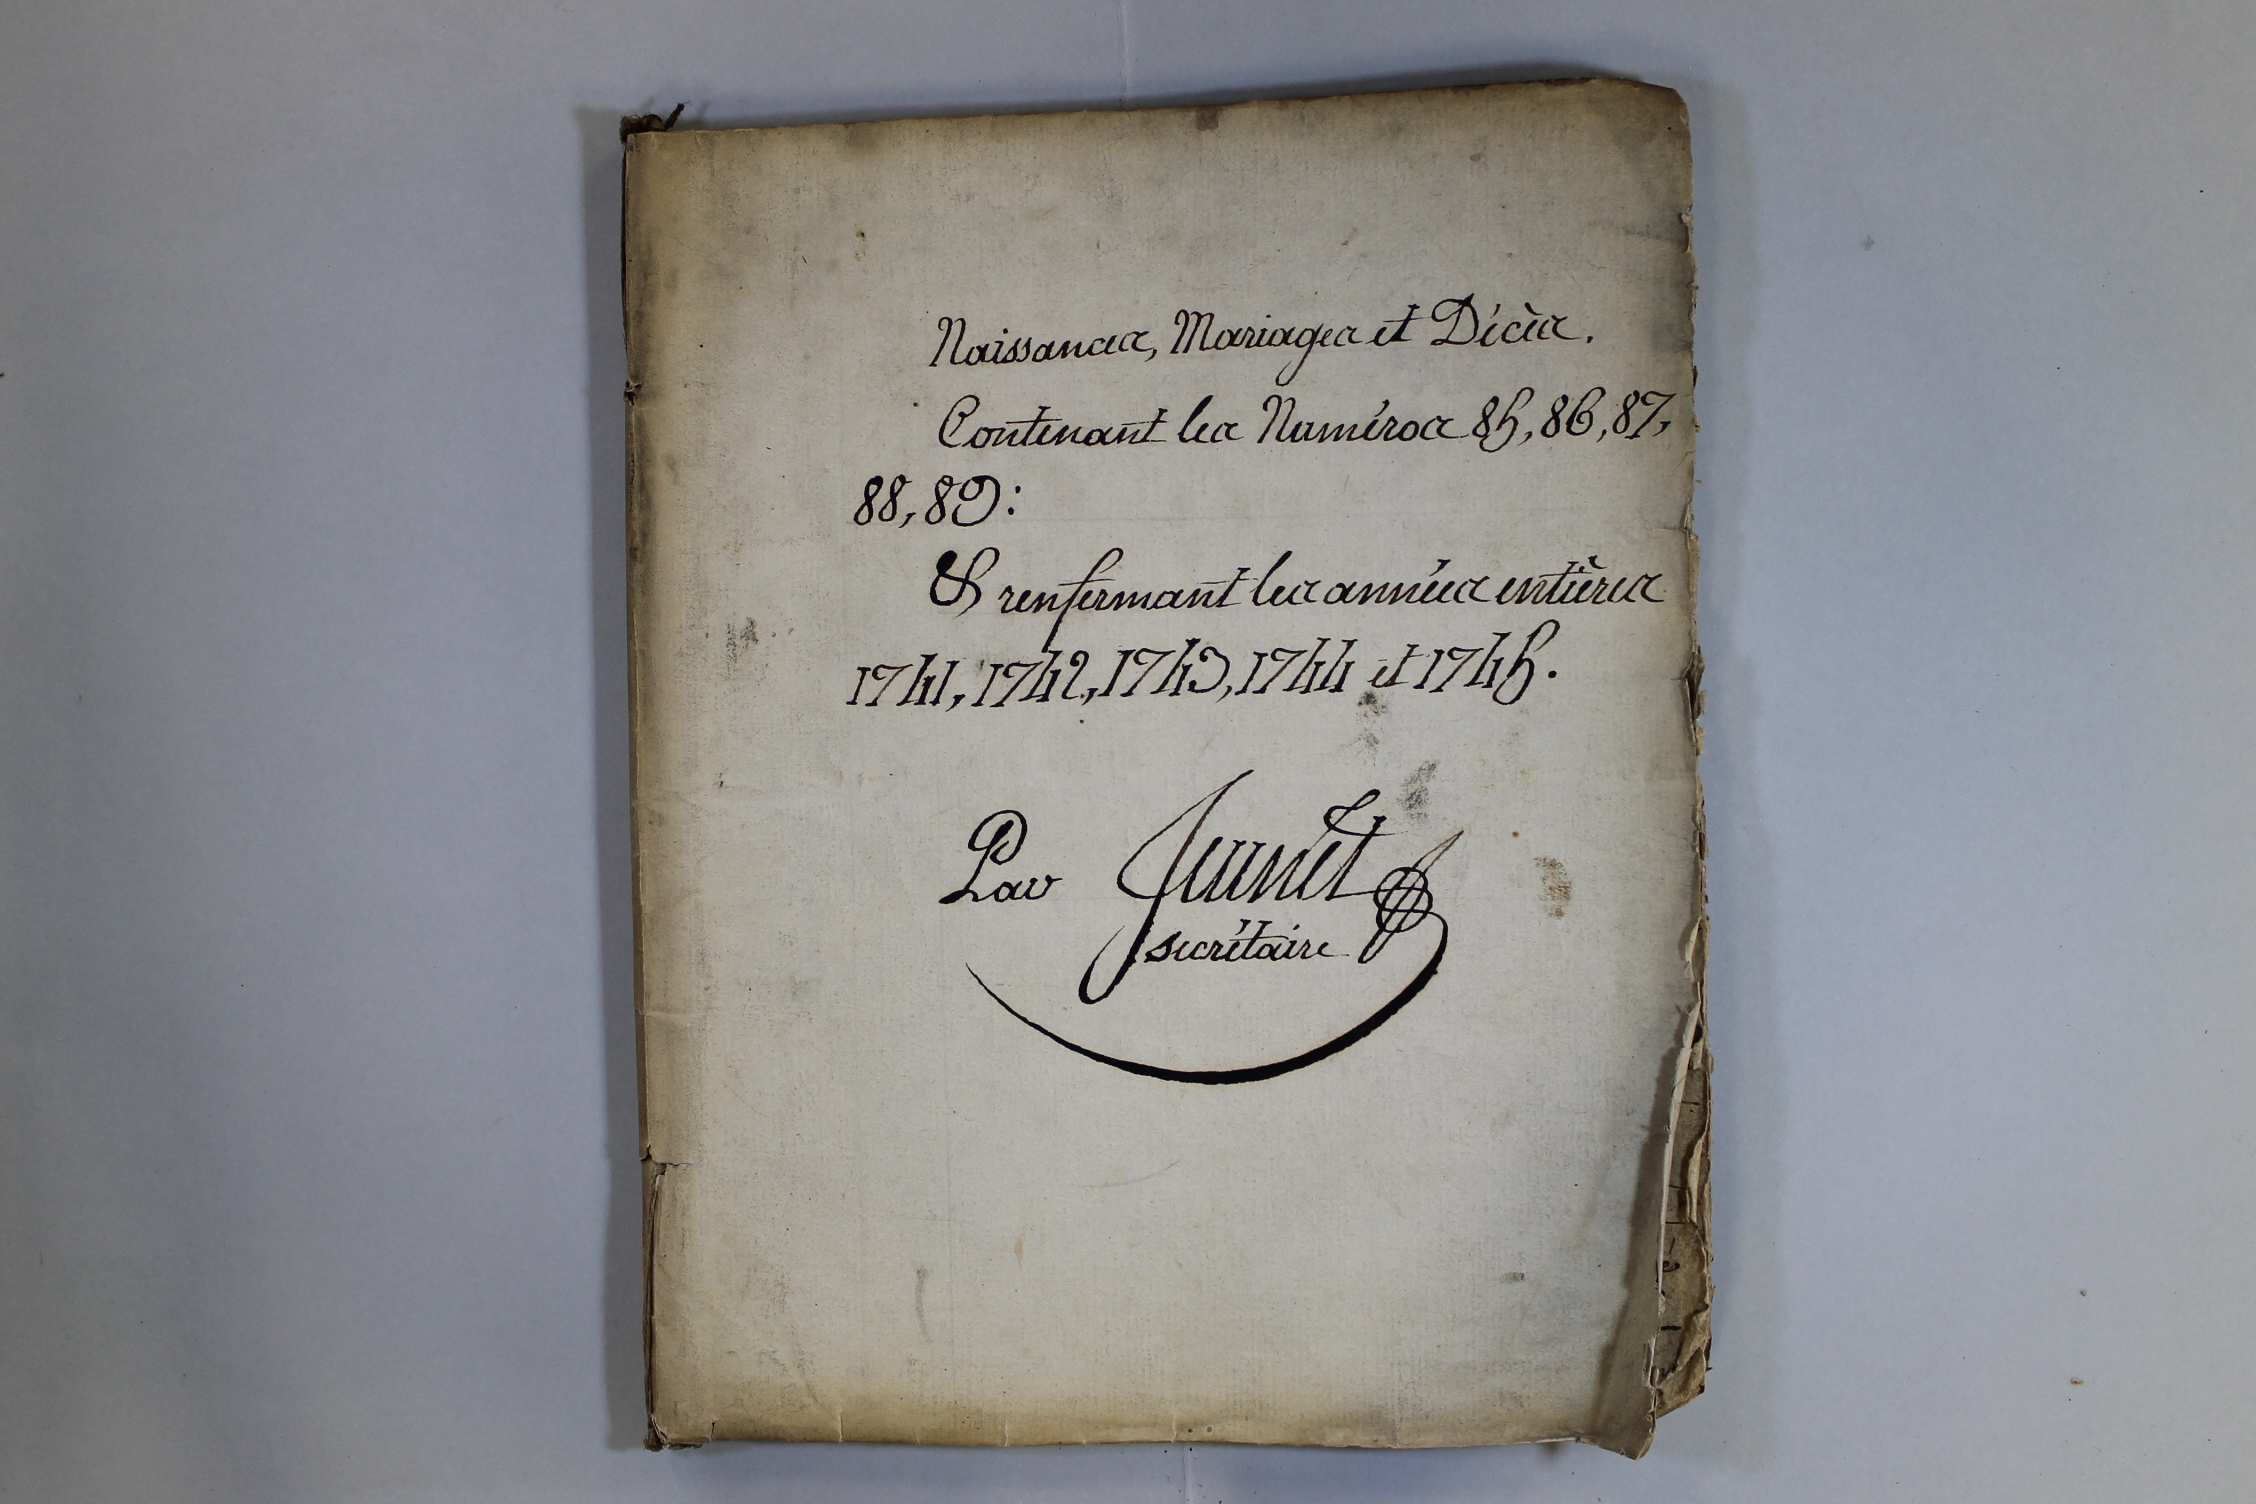 Naissances, Mariages et Décès.
Contenant les Numéros 85, 86, 87,
88, 89:
& renfermant les années entières
1741, 1742, 1743, 1744 et 1745.
Par
secrétaire